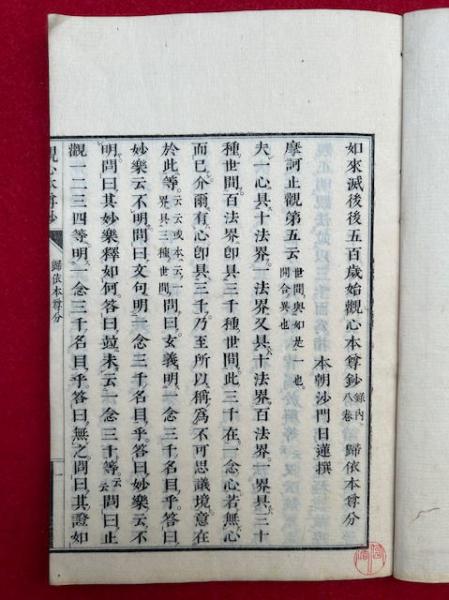 如來滅後後五百歲始觀心本尊鈔 錄內八卷 歸依本尊分
本朝沙門日蓮撰
摩訶止觀第五云 世間與如是一也開合異也
夫一心具十法界一法界又具十法界百法界一界具三十
種世間百法界卽具三千種世間此三千在一念心若無心
而已介爾有心卽具三千乃至所以稱爲不可思議境意在
於此等云云或本云一界具三種世間問曰玄義明一念三千名目乎答曰
妙樂云不明問曰文句明一念三千名目乎答曰妙樂云不
明問曰其妙樂釋如何答曰竝未云一念三千等云云問曰止
觀一二三四等明一念三千名目乎答曰無之問曰其證如
觀心本尊鈔 歸依本尊分 一